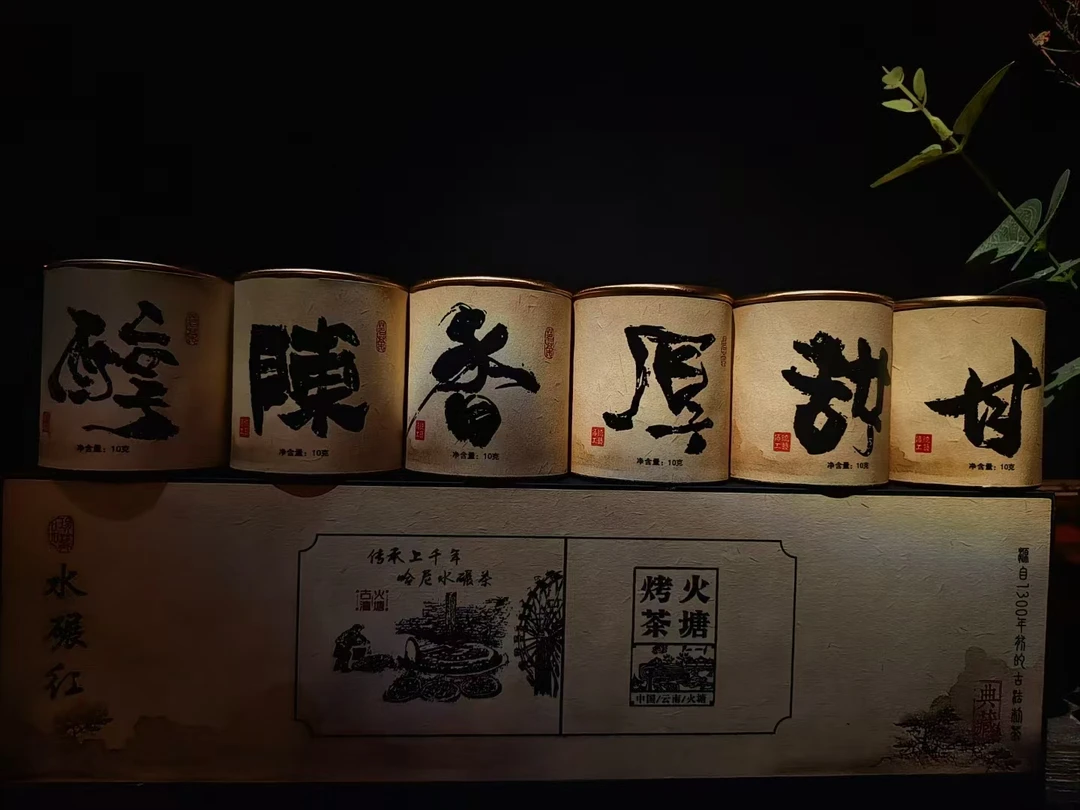 醇
陳
香
厚
甜
甘
净含量：10克
净含量：10克
净含量：10克
净含量：10克
净含量：10克
净含量：10克
水碾红
传承上千年
哈尼水碾茶
火塘
古滇
火塘
烤茶
中国/云南/火塘
源自1300年前的古法制茶